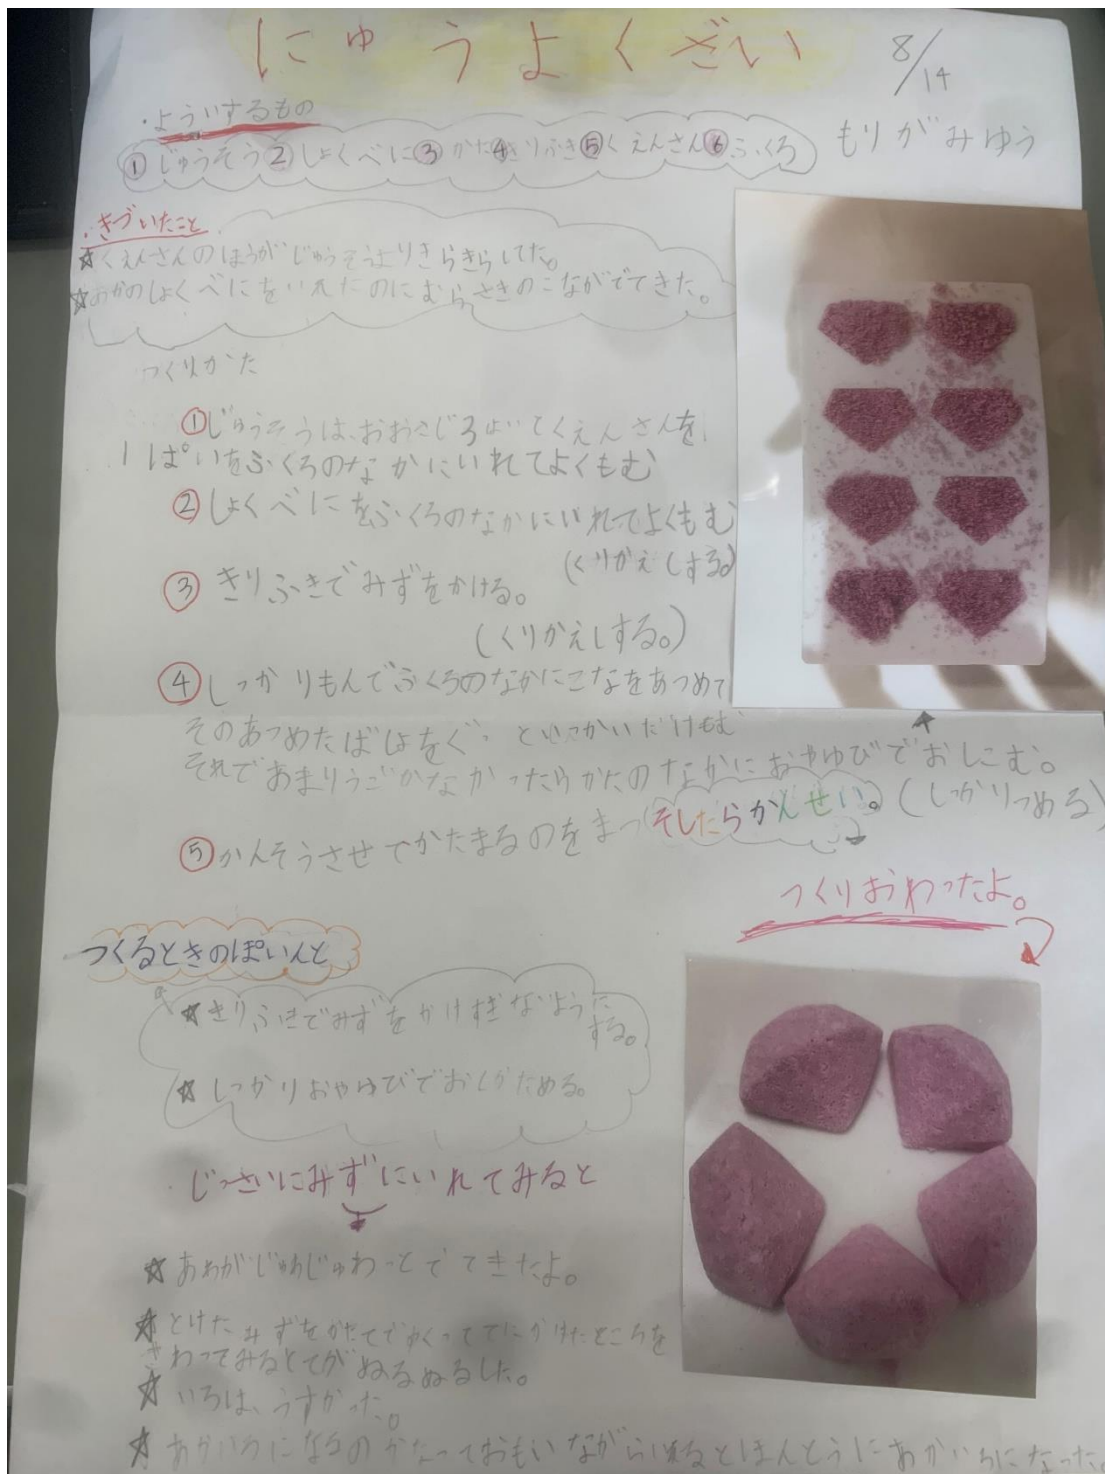 にゅうよくざい
8/14
・よういするもの
もりがみゆう
①じゅうそう②しょくべに③かた④きりふき⑤くえんさん⑥ふくろ
・きづいたこと
☆くえんさんのほうがじゅうそうよりきらきらしてた。
☆あかのしょくべにをいれたのにむらさきのこながでてきた。
つくりかた
①じゅうそうは、おおさじ くえんさんを
1ぱいをふくろのなかにいれてよくもむ
②しょくべにをふくろのなかにいれてよくもむ
(くりかえしする。)
③きりふきでみずをかける。
(くりかえしする。)
④しっかりもんでふくろのなかにこなをあつめて
そのあつめたばしょをぐっと かいだけもむ
それであまりうごかなかったらかたのなかにおやゆびでおしこむ。
(しっかりつめる)
⑤かんそうさせてかたまるのをまつ そしたらかんせい。
つくりおわったよ。
つくるときのぽいんと
☆きりふきでみずをかけすぎないように
する。
☆しっかりおやゆびでおしかためる。
・じっさいにみずにいれてみると
☆あわがじゅわじゅわっとでてきたよ。
☆とけたみずをかたてですくっててにかけたところを
さわってみるとてがぬるぬるした。
☆いろは、うすかった。
☆あかいろになるのかなっておもいながらいれるとほんとうにあかいろになった。